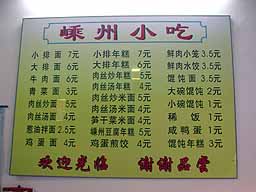 嵊州小吃
小排面 7元 小排年糕 7元 鲜肉小笼 3.5元
大排面 6元 大排年糕 6元 鲜肉水饺 3.5元
牛肉面 6元 肉丝炒年糕 5元 馄饨面 3.5元
青菜面 3元 肉丝汤年糕 4元 大碗馄饨 2元
肉丝炒面 5元 肉丝炒米面 5元 小碗馄饨 1元
肉丝汤面 4元 笋干菜米面 4元 稀饭 1元
葱油拌面 2.5元 嵊州豆腐年糕 5元 咸鸭蛋 1元
鸡蛋面 4元 鸡蛋煎饺 4元 馄饨年糕 3元
欢迎光临 谢谢品尝